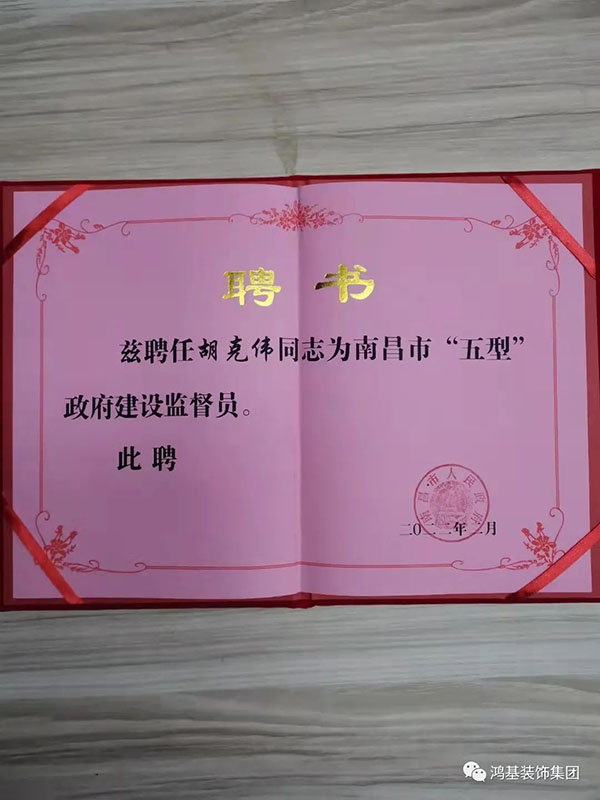 聘书
兹聘任胡克伟同志为南昌市“五型”
政府建设监督员。
此聘
南昌市人民政府
二〇二二年二月
鸿基装饰集团